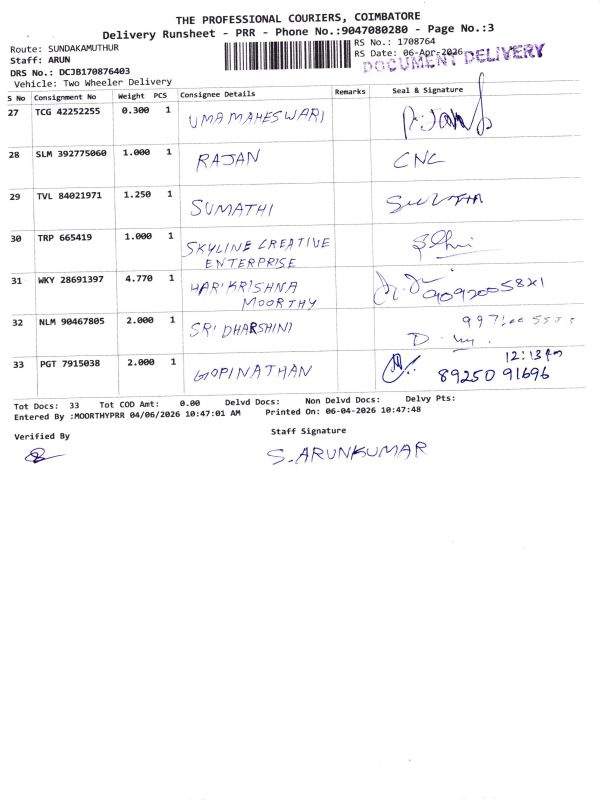 THE PROFESSIONAL COURIERS, COIMBATORE
Delivery Runsheet - PRR - Phone No.:9047080280 - Page No.:3
Route: SUNDAKAMUTHUR
RS No.: 1708764
Staff: ARUN
RS Date: 06-Apr-2026
DOCUMENT DELIVERY
DRS No.: DCJB170876403
Vehicle: Two Wheeler Delivery
S No Consignment No Weight PCS Consignee Details Remarks Seal & Signature
27 TCG 42252255 0.300 1 UMAMAHESWARI
28 SLM 392775060 1.000 1 RAJAN CNC
29 TVL 84021971 1.250 1 SUMATHI
30 TRP 665419 1.000 1 SKYLINE CREATIVE
ENTERPRISE
31 WKY 28691397 4.770 1 HARIKRISHNA
MOORTHY
32 NLM 90467805 2.000 1 SRI DHARSHINI
12:13 Pm
33 PGT 7915038 2.000 1 GOPINATHAN 89250 91696
Tot Docs: 33 Tot COD Amt: 0.00 Delvd Docs: Non Delvd Docs: Delvy Pts:
Entered By :MOORTHYPRR 04/06/2026 10:47:01 AM Printed On: 06-04-2026 10:47:48
Verified By
Staff Signature
S. ARUNKUMAR